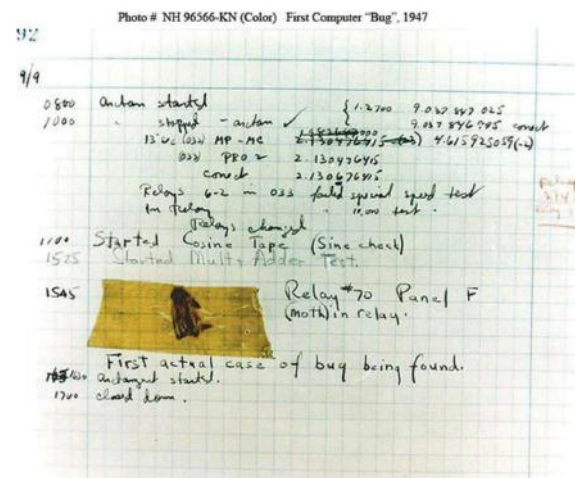 Photo # NH 96566-KN (Color) First Computer “Bug”, 1947
92
9/9
0800 antan started
1000 " stopped - antan ✓ { 1.2700 9.037 847 025
9.037 846 795 correct
13"uc (032) MP - MC 2.130476415 (-3) 4.615925059 (-2)
(033) PRO 2 2.130476415
correct 2.130676415
Relays 6-2 in 033 failed special speed test
in Relay " 10,000 test.
Relays changed
1100 Started Cosine Tape (Sine check)
1525 Started Mult+Adder Test.
1545 Relay #70 Panel F
(moth) in relay.
First actual case of bug being found.
1630 antangent started.
1700 closed down.